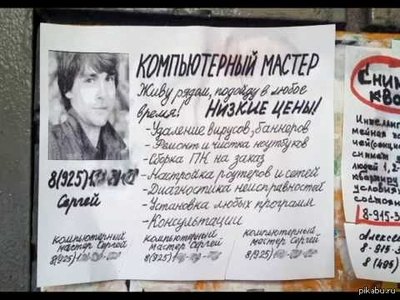 КОМПЬЮТЕРНЫЙ МАСТЕР
Живу рядом, подойду в любое
время! НИЗКИЕ ЦЕНЫ!
- Удаление вирусов, баннеров
- Ремонт и чистка ноутбуков
- Сборка ПК на заказ
- Настройка роутеров и сетей
- Диагностика неисправностей
- Установка любых программ
- Консультации
8(925)1
Сергей
компьютерный
мастер Сергей
8(925)1
компьютерный
мастер Сергей
8(925)1
компьютерный
мастер Сергей
8(925)1
Сним
кво
людей 1, 2-
условия
8-915-3
Алексе
8-915-
8(495)
pikabu.ru